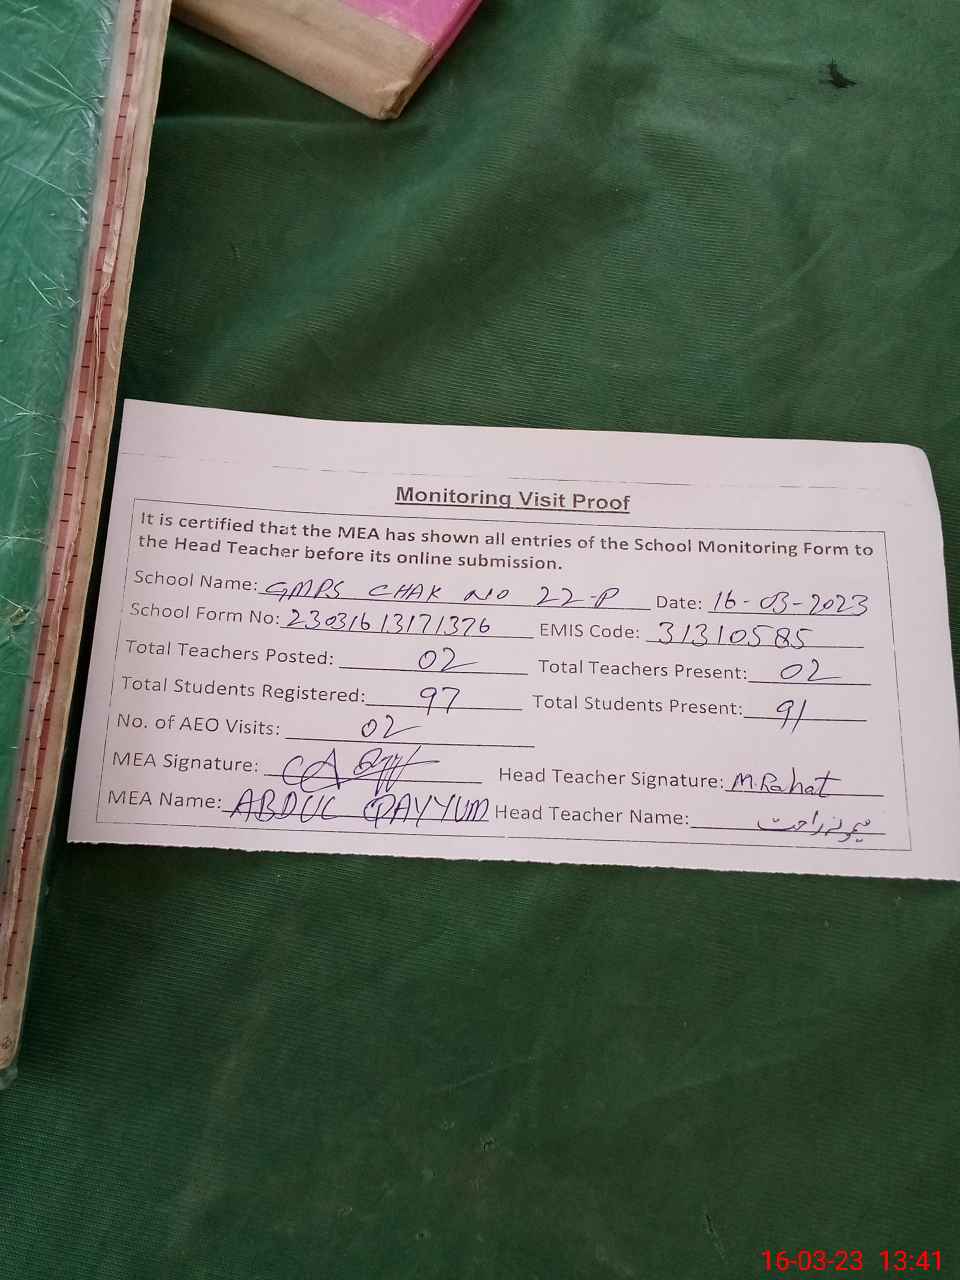 Monitoring Visit Proof
It is certified that the MEA has shown all entries of the School Monitoring Form to
the Head Teacher before its online submission.
School Name: GMPS CHAK NO 22-P Date: 16-03-2023
School Form No: 23031613171376 EMIS Code: 31310585
Total Teachers Posted: 02 Total Teachers Present: 02
Total Students Registered: 97 Total Students Present: 91
No. of AEO Visits: 02
MEA Signature: Head Teacher Signature: M.Rahat
MEA Name: ABDUL QAYYUM Head Teacher Name: راحت
16-03-23 13:41